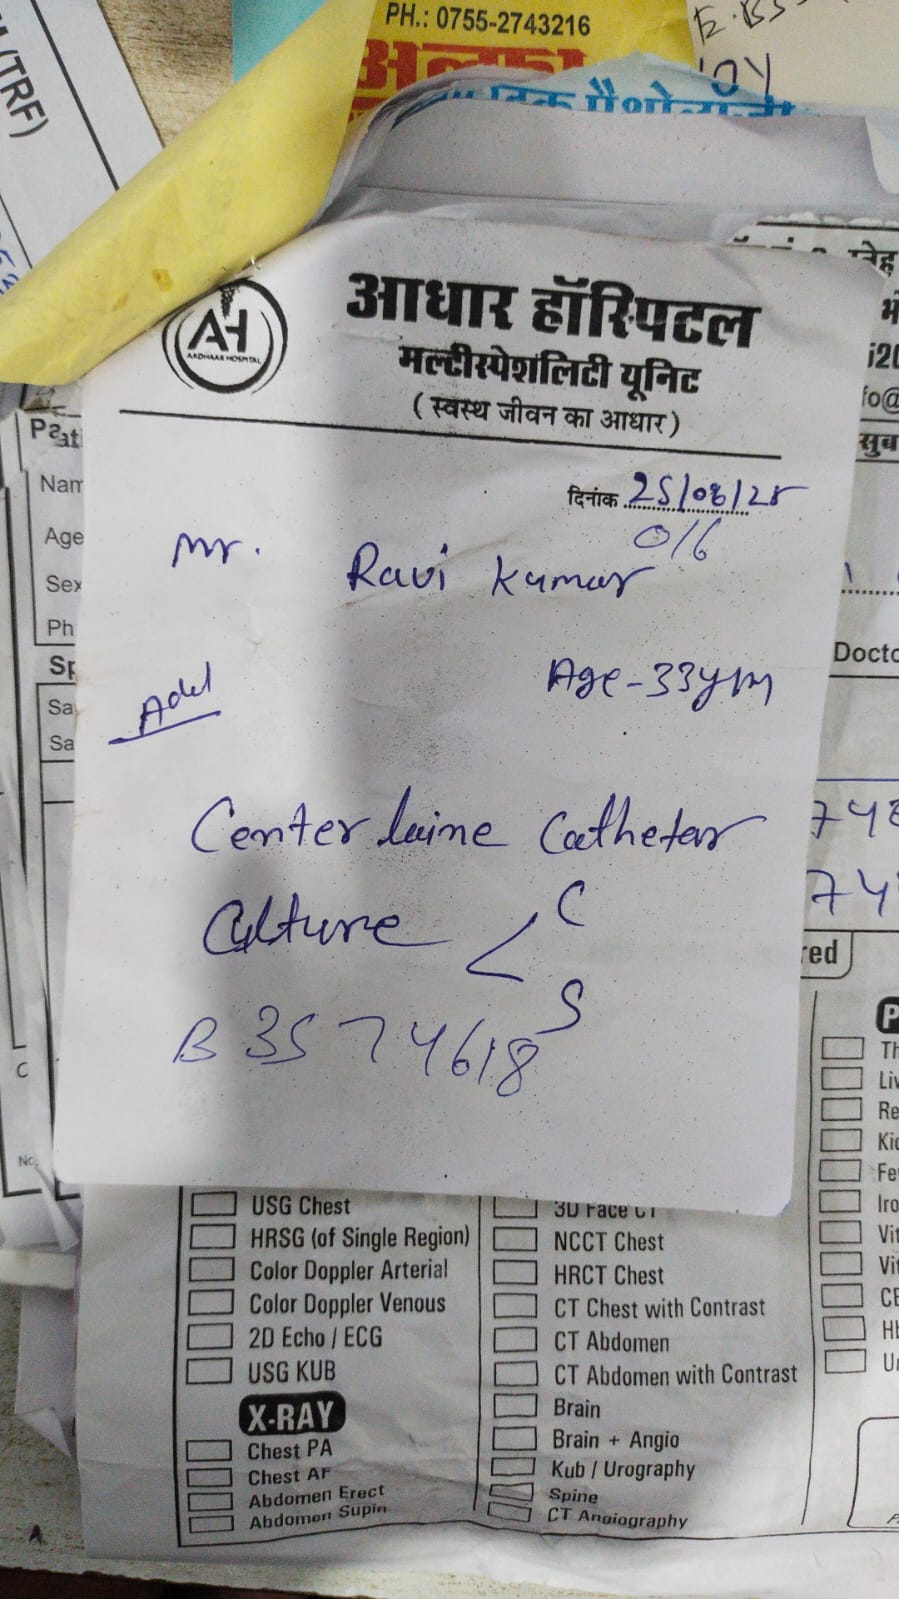 (TRF)
PH.: 0755-2743216
अलका
पैथोलॉजी
AH
AARDHAAR HOSPITAL
आधार हॉस्पिटल
मल्टीस्पेशलिटी यूनिट
( स्वस्थ जीवन का आधार )
दिनांक 25/08/25
016
Mr. Ravi Kumar
Age - 33y m
Adv
Center laine Catheter
Culture < C
S
B 3574618
Nam
Age
Sex
Ph
Sa
Sa
Docto
748
74
red
USG Chest
HRSG (of Single Region)
Color Doppler Arterial
Color Doppler Venous
2D Echo / ECG
USG KUB
X-RAY
Chest PA
Chest AF
Abdomen Erect
Abdomen Supin
3D Face CT
NCCT Chest
HRCT Chest
CT Chest with Contrast
CT Abdomen
CT Abdomen with Contrast
Brain
Brain + Angio
Kub / Urography
Spine
CT Angiography
Th
Liv
Re
Kid
Fe
Iro
Vit
Vit
CB
Hb
Ur